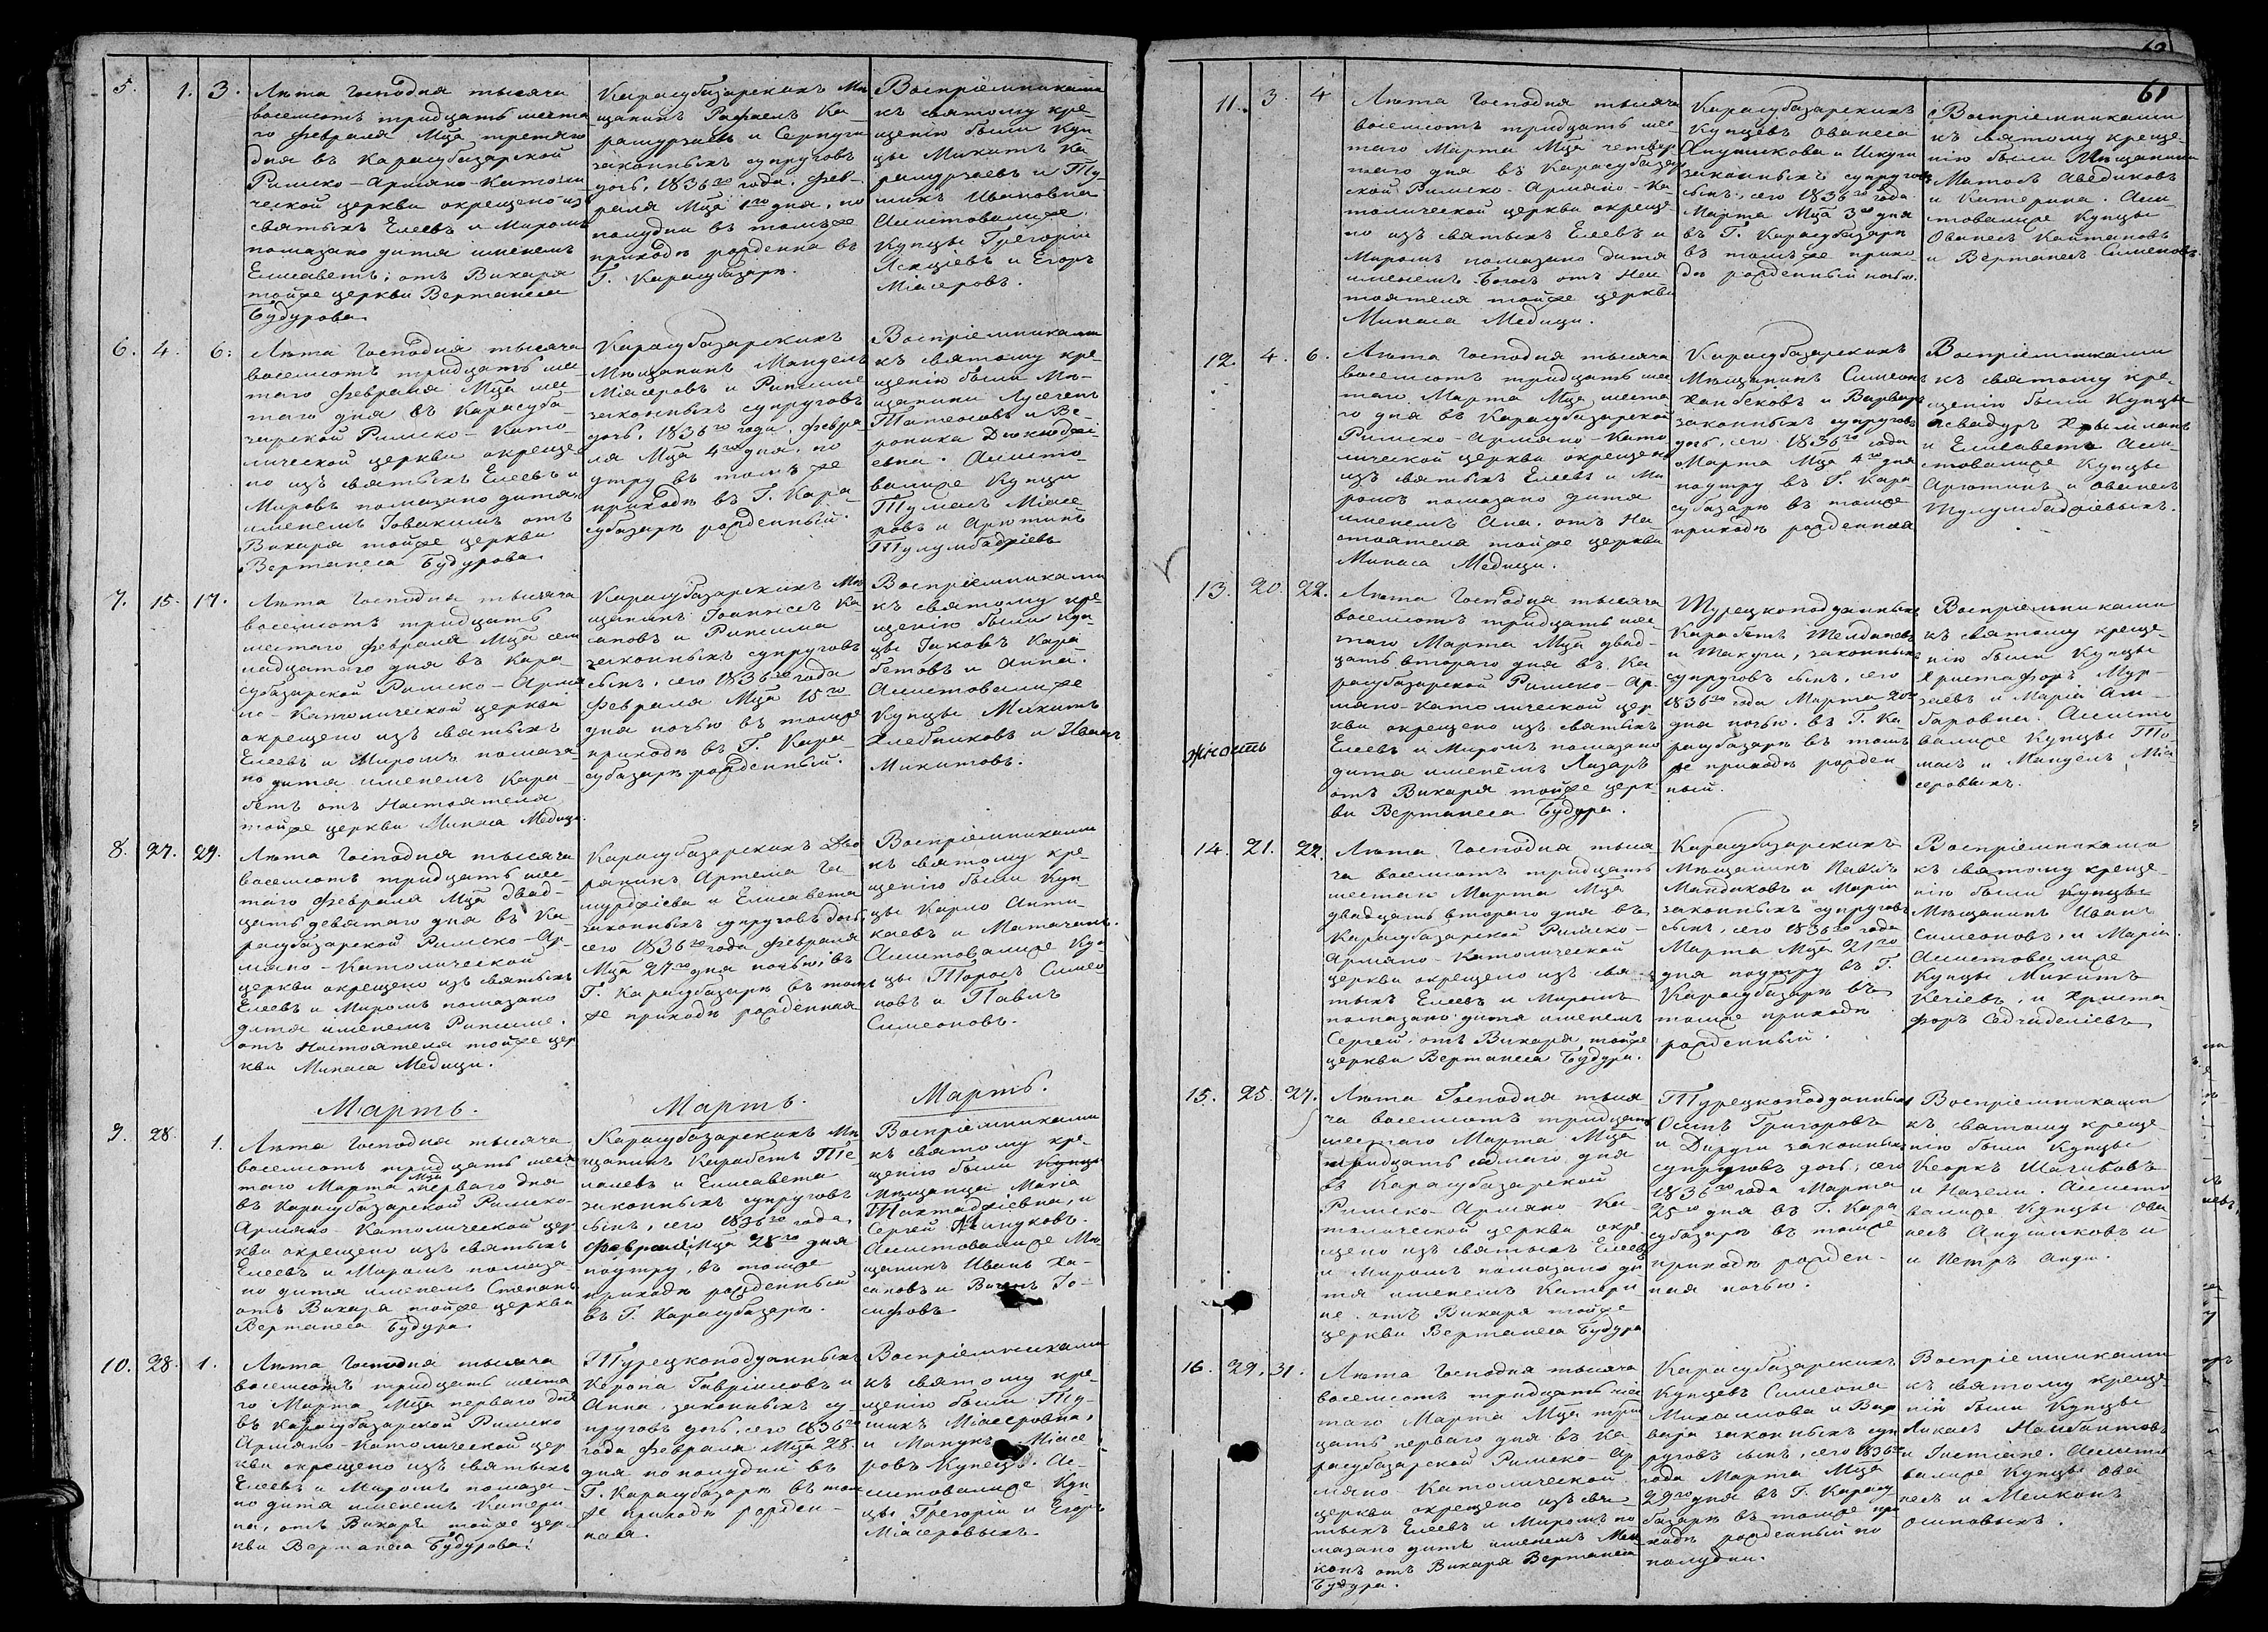 5. 1. 3.
Лѣта Господня тысяча
восемсотъ тридцать шеста
го февраля Мца третяго
дня въ Карасубазарской
Римско-Армяно-Католи
ческой церкви окрещено изъ
святыхъ Елеевъ и Миромъ
помазано дитя именемъ
Елисаветъ; отъ Викаря
тойже церкви Вертанеса
Будурова.
Карасубазарскихъ Мѣ
щанинъ Рафаелъ Ка-
рамурзаевъ и Серпуги
законныхъ супруговъ
дочь, 1836го года, фев-
раля Мца 1го дня, по
полудни въ томъ же
приходѣ рожденна въ
Г. Карасубазарѣ.
Воспріемниками
къ святому кре-
щенію были Куп
цы Микитъ Ка
рамурзаевъ и Ту
шикъ Ивановна
Асистовалиже
Купцы Грегорій
и Егоръ
Міасеровъ.
6. 4. 6.
Лѣта Господня тысяча
восемсотъ тридцать ше-
таго февраля Мца шес-
таго дня въ Карасуба-
зарской Римско-Като-
лической церкви окреще-
но изъ святыхъ Елеевъ и
Миромъ помазано дитя
именемъ Іовакимъ отъ
Викаря тойже церкви
Вертанеса Будурова.
Карасубазарскихъ
Мѣщанинъ Мандель
Міасеровъ и Рипсиме
законныхъ супруговъ
дочь, 1836го года, февра
ля Мца 4го дня, по
утру въ томъ же
приходѣ въ Г. Кара-
субазарѣ рожденный.
Воспріемниками
къ святому кре-
щенію были Мѣ-
щанины
Татеосовъ и Ве-
роника
евна. Асисто-
валиже Купцы
Тумасъ Міасе
ровъ и Арютинъ
Тулумбаджіевъ
7. 15. 17.
Лѣта Господня тысяча
восемсотъ тридцать
шестаго февраля Мца сем
надцатаго дня въ Кара-
субазарской Римско-Армя
но-Католической церкви
окрещено изъ святыхъ
Елеевъ и Миромъ помаза-
но дитя именемъ Кара-
бетъ отъ Настоятеля
тойже церкви Минаса Медици.
Карасубазарскихъ Мѣ-
щанинъ Іоаннесъ Ка
сановъ и Рипсима
законныхъ супруговъ
сынъ, сего 1836го года
февраля Мца 15го
дня ночью въ томже
приходѣ въ Г. Кара-
субазарѣ рожденный.
Воспріемниками
къ святому кре-
щенію были Куп-
цы Іаковъ Кара-
бетовъ и Анна.
Асистовалиже
Купцы Микитъ
Хлебниковъ и Иванъ
Микитовъ.
8. 27. 29.
Лѣта Господня тысяча
восемсотъ тридцать шес-
таго февраля Мца двад-
цать девятаго дня въ Ка-
расубазарской Римско-Ар-
мяно-Католической
церкви окрещено изъ святыхъ
Елеевъ и Миромъ помазано
дитя именемъ Рипсиме.
отъ Настоятеля тойже цер
кви Минаса Медици.
Карасубазарскихъ Дво
рянинъ Артема
и Елисавета
законныхъ супруговъ дочь,
сего 1836го года февраля
Мца 27го дня ночью, въ
Г. Карасубазарѣ въ томъ
же приходѣ рожденная
Воспріемниками
къ святому кре-
щенію были Куп-
цы Карпо Анти-
каевъ и
Асистовалиже Куп
цы Торосъ Симео
новъ и Павелъ
Симеоновъ.
Мартъ. Мартъ. Мартъ.
9. 28. 1.
Лѣта Господня тысяча
восемсотъ тридцать шес
таго Марта Мца перваго дня
въ Карасубазарской Римско
Армяно-Католической цер
кви окрещено изъ святыхъ
Елеевъ и Миромъ помаза
но дитя именемъ Степанъ
отъ Викаря тойже церкви
Вертанеса Будура.
Карасубазарскихъ Мѣ
щанинъ Карабетъ
и Елисавета
законныхъ супруговъ
сынъ, сего 1836го года,
февраля Мца 28го дня
поутру, въ томже
приходѣ рожденный
въ Г. Карасубазарѣ.
Воспріемниками
къ святому кре
щенію были Купцы
Мѣщанца Маріа
Тахтаджіевна, и
Сергей
Асистовалиже Мѣ-
щанинъ Иванъ Ха-
сановъ и Іо-
сифовъ
10. 28. 1.
Лѣта Господня тысяча
восемсотъ тридцать шеста
го Марта Мца перваго дня
въ Карасубазарской Римско
Армяно-Католической цер
кви окрещено изъ святыхъ
Елеевъ и Миромъ помаза-
но дитя именемъ Катери
на, отъ Викаря тойже цер-
кви Вертанеса Будурова.
Турецкоподданныхъ
Керопа Гавріиловъ и
Анна, законныхъ су-
пруговъ дочь, сего 1836го
года февраля Мца 28.
дня по полудни въ
Г. Карасубазарѣ въ том
же приходѣ рожден-
ная.
Воспріемниками
къ святому кре-
щенію были Ту-
шикъ Міасеровна,
и Манукъ Міасе
ровъ Купецъ. Ас-
систовалиже Куп
цы Грегорій и Егоръ
Міасеровыхъ.
61
11. 3. 4
Лѣта Господня тысяча
восемсотъ тридцать шес-
таго Марта Мца четвер
таго дня въ Карасубазар
ской Римско-Армяно-Ка-
толической церкви окреще-
но изъ святыхъ Елеевъ и
Миромъ помазано дитя
именемъ Богосъ отъ Нас
тоятеля тойже церкви
Минаса Медици.
Карасубазарскихъ
Купцевъ Ованеса
Анушикова и Шкуги
законныхъ супруговъ
сынъ, сего 1836го года
Марта Мца 3го дня
въ Г. Карасубазарѣ
въ томъже прихо-
дѣ рожденный ночью.
Воспріемниками
къ святому креще-
нію были Мѣщанины
Матосъ Аведиковъ
и Катерина. Аси-
стовалиже Купцы
Ованесъ Каитановъ
и Вертанесъ Симеоновъ.
12. 4. 6.
Лѣта Господня тысяча
восемсотъ тридцать шес
таго Марта Мца шеста
го дня въ Карасубазарской
Римско-Армяно-Като
лической церкви окрещено
изъ святыхъ Елеевъ и Ми
ромъ помазано дитя
именемъ Ана. отъ На-
стоятеля тойже церкви
Минаса Медици.
Карасубазарскихъ
Мѣщанинъ Симеонъ
Ханбековъ и Варвара
законныхъ супруговъ
дочь, сего 1836го года
Марта Мца 4го дня
поутру въ Г. Кара-
субазарѣ въ томже
приходѣ рожденная
Воспріемниками
къ святому кре-
щенію были Купцы
и Елисавета Аси-
стовалиже Купцы
Арютинъ и Ованесъ
Тулумбаджіевыхъ.
13. 20. 22.
Лѣта Господня тысяча
восемсотъ тридцать шес-
таго Марта Мца двад-
цать втораго дня въ Ка
расубазарской Римско-Ар-
мяно-католической цер
кви окрещено изъ святыхъ
Елеевъ и Миромъ помазано
дитя именемъ Лазаръ
отъ Викаря тойже церк-
ви Вертанеса Будура.
Турецкоподданныхъ
Карабетъ
и Такуги, законныхъ
супруговъ сынъ, сего
1836го года Марта 20го
дня ночью. въ Г. Ка-
расубазарѣ въ томъ
же приходѣ рожден
ный.
Воспріемниками
къ святому креще-
нію были Купцы
Христофоръ Мур-
заевъ и Марія Ам-
баровна. Асисто
валиже Купцы То-
масъ и Мандель Міа
серовыхъ.
14. 21. 22.
Лѣта Господня тыся
ча восемсотъ тридцать
шестаго Марта Мца
двадцать втораго дня въ
Карасубазарской Римско-
Армяно-Католической
церкви окрещено изъ свя-
тыхъ Елеевъ и Миромъ
помазано дитя именемъ
Сергей. отъ Викаря тойже
церкви Вертанеса Будура.
Карасубазарскихъ
Мѣщанинъ Павелъ
Майдиковъ и Марія
законныхъ супруговъ
сынъ, сего 1836го года
Марта Мца 21го
дня поутру въ Г.
Карасубазарѣ въ
томже приходѣ
рожденный.
Воспріемниками
къ святому креще-
нію были Купцы
Мѣщанинъ Иванъ
Симеоновъ, и Марія
Асистовалиже
Купцы Микитъ
Кечіевъ, и Христо
форъ
15. 25. 27.
Лѣта Господня тыся
ча восемсотъ тридцать
шестаго Марта Мца
тридцать седмаго дня
въ Карасубазарской
Римско-Армяно Ка-
толической церкви окре-
щено изъ святыхъ Елеевъ
и Миромъ помазано ди
тя именемъ Катери
не. отъ Викаря тойже
церкви Вертанеса Будура
Турецкоподданныхъ
Осипъ Григоровъ
и законныхъ
супруговъ дочь, сего
1836го года Марта
25го дня въ Г. Кара-
субазарѣ въ томже
приходѣ рожден-
ная ночью.
Воспріемниками
къ святому креще-
нію были Купцы
Кеоркъ
и Назели. Асисто
валиже Купцы Ова-
несъ Андушиковъ и
и Петръ
16. 29. 31.
Лѣта Господня тысяча
восемсотъ тридцать шес
таго Марта Мца трид
цать перваго дня въ Ка-
расубазарской Римско-Ар
мяно Католической
церкви окрещено изъ свя-
тыхъ Елеевъ и Миромъ по
мазано дитя именемъ Мел
конъ отъ Викаря Вертанеса
Будура.
Карасубазарскихъ
Купцевъ Симеона
Михаилова и Вар
вара законныхъ суп
руговъ сынъ, сего 1836го
года Марта Мца
29го дня въ Г. Карасу-
базарѣ въ томже при
ходѣ рожденный по
полудни.
Воспріемниками
къ святому креще-
нію были Купцы
Лукасъ
и Асисто
валиже Купцы Ова
несъ и Мелконъ
Осиповыхъ.